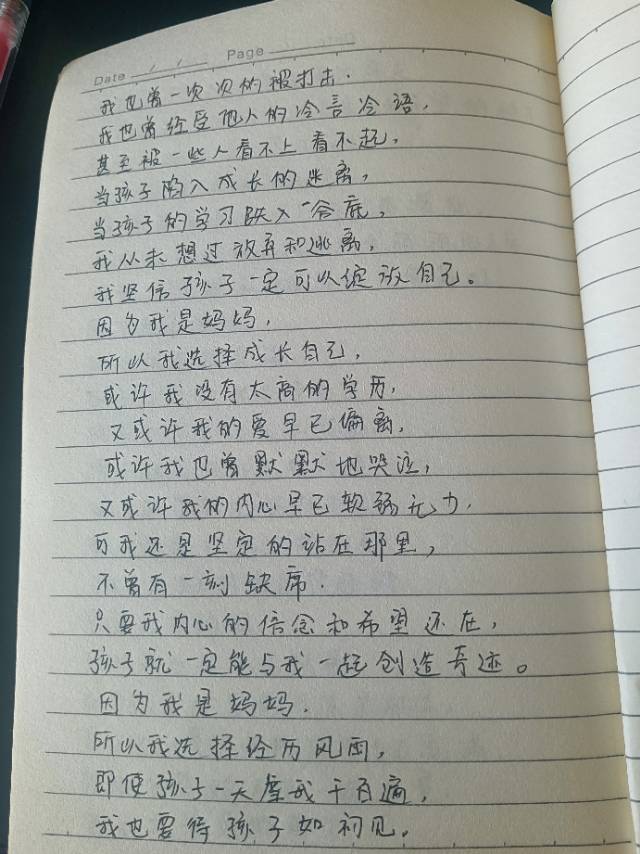 Date / / Page
我也曾一次次的被打击.
我也曾经受他人的冷言冷语,
甚至被一些人看不上看不起,
当孩子陷入成长的迷离,
当孩子的学习跌入谷底,
我从未想过放弃和逃离,
我坚信孩子一定可以绽放自己。
因为我是妈妈,
所以我选择成长自己,
或许我没有太高的学历,
又或许我的爱早已偏离,
或许我也曾默默地哭泣,
又或许我的内心早已软弱无力.
可我还是坚定的站在那里,
不曾有一刻缺席.
只要我内心的信念和希望还在,
孩子就一定能与我一起创造奇迹。
因为我是妈妈.
所以我选择经历风雨,
即使孩子一天虐我千百遍,
我也要待孩子如初见。